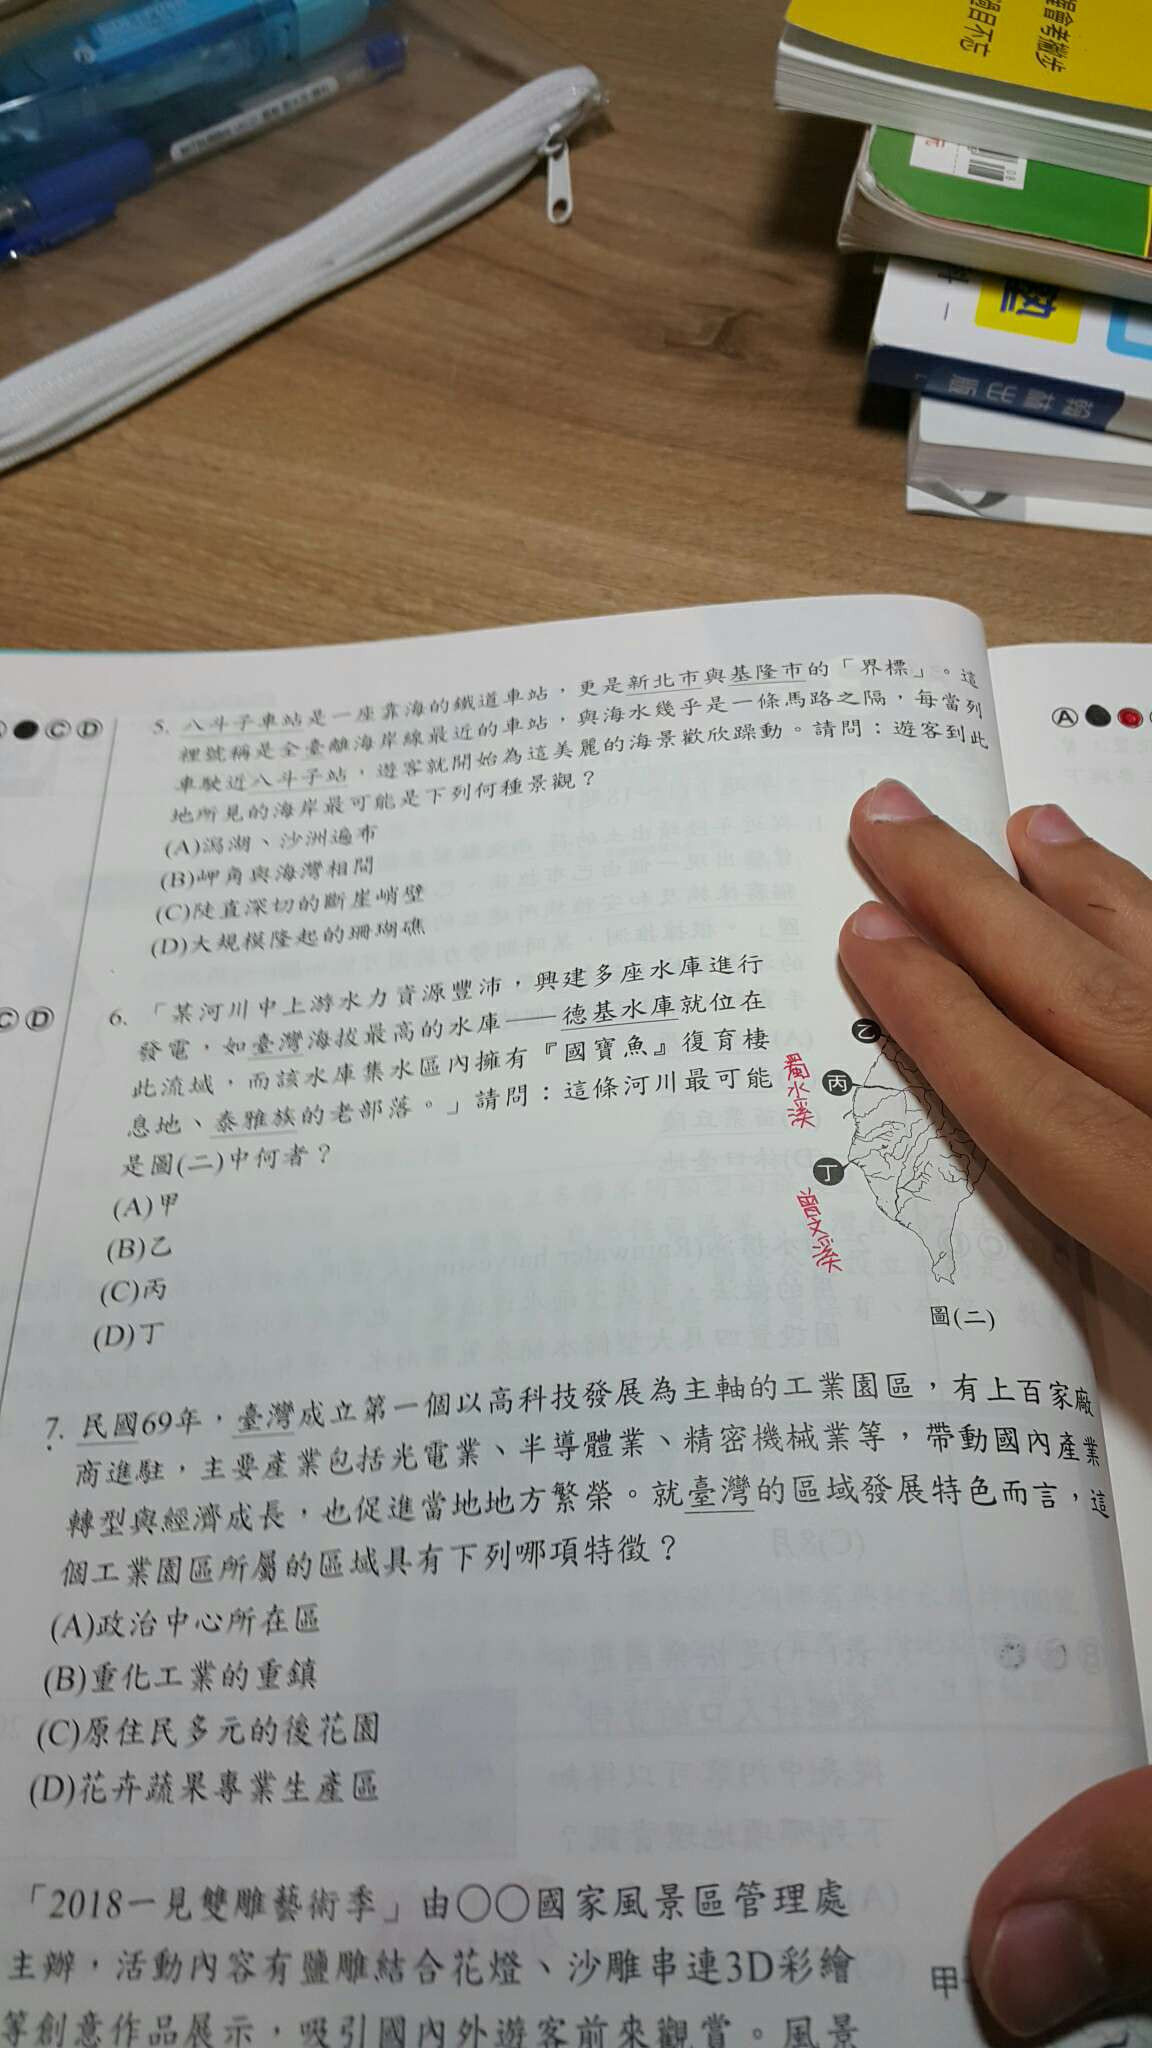 程會考撇步
過目不忘
翰林出版
5. 八斗子車站是一座靠海的鐵道車站，更是新北市與基隆市的「界標」。這
裡號稱是全臺離海岸線最近的車站，與海水幾乎是一條馬路之隔，每當列
車駛近八斗子站，遊客就開始為這美麗的海景歡欣躁動。請問：遊客到此
地所見的海岸最可能是下列何種景觀？
(A)潟湖、沙洲遍布
(B)岬角與海灣相間
(C)陡直深切的斷崖峭壁
(D)大規模隆起的珊瑚礁
6. 「某河川中上游水力資源豐沛，興建多座水庫進行
發電，如臺灣海拔最高的水庫——德基水庫就位在
此流域，而該水庫集水區內擁有『國寶魚』復育棲
息地、泰雅族的老部落。」請問：這條河川最可能
是圖(二)中何者？
(A)甲
(B)乙
(C)丙
(D)丁
乙
丙
濁水溪
丁
曾文溪
圖(二)
7. 民國69年，臺灣成立第一個以高科技發展為主軸的工業園區，有上百家廠
商進駐，主要產業包括光電業、半導體業、精密機械業等，帶動國內產業
轉型與經濟成長，也促進當地地方繁榮。就臺灣的區域發展特色而言，這
個工業園區所屬的區域具有下列哪項特徵？
(A)政治中心所在區
(B)重化工業的重鎮
(C)原住民多元的後花園
(D)花卉蔬果專業生產區
「2018一見雙雕藝術季」由〇〇國家風景區管理處
主辦，活動內容有鹽雕結合花燈、沙雕串連3D彩繪
等創意作品展示，吸引國內外遊客前來觀賞。風景
甲
C D
C D
A